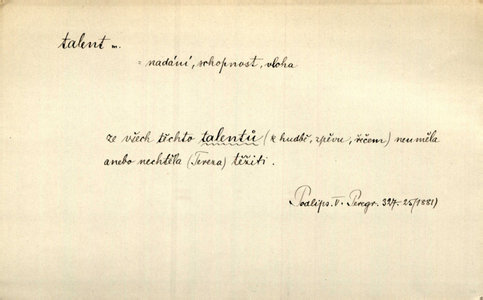 talent m.
= nadání, schopnost, vloha
ze všech těchto talentů (k hudbě, zpěvu, řečem) neuměla
anebo nechtěla (Tereza) těžiti.
Podlips. V. Peregr. 327-25/1881)